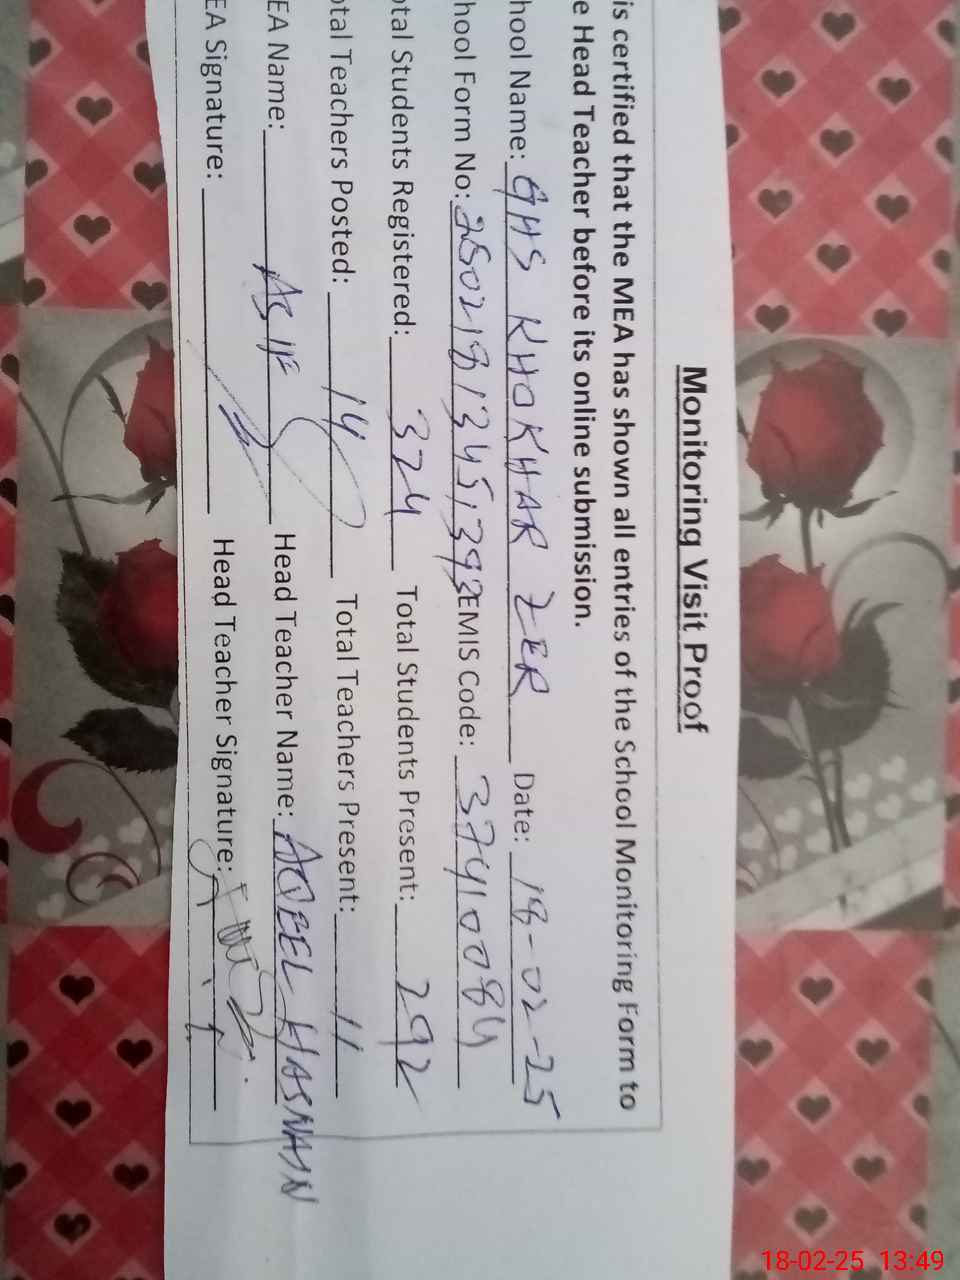 Monitoring Visit Proof
is certified that the MEA has shown all entries of the School Monitoring Form to
e Head Teacher before its online submission.
hool Name: GHS KHOKHAR ZER Date: 18-02-25
hool Form No: EMIS Code: 37410084
otal Students Registered: 324 Total Students Present: 292
otal Teachers Posted: 14 Total Teachers Present: 11
EA Name: ASIF Head Teacher Name: AQEEL HASNAIN
EA Signature: Head Teacher Signature:
18-02-25 13:49